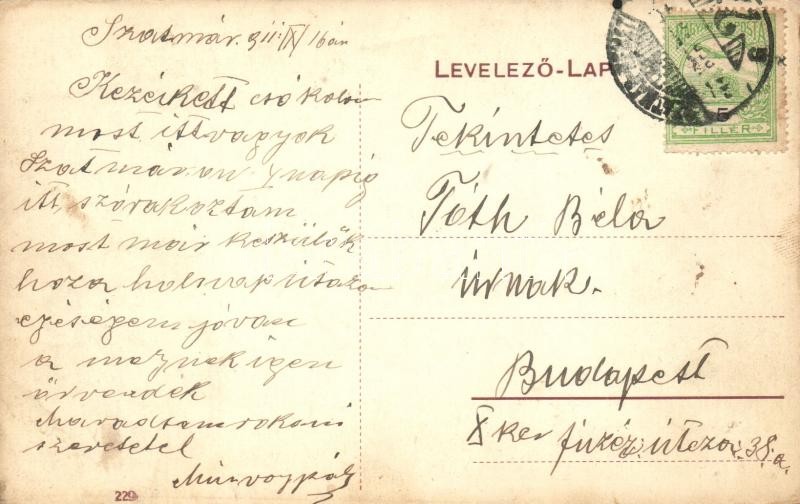 Szatmár. 911. IX 16án
Kezeikett csókolom
most itt vagyok
Szatmáron napig
itt szórakoztam
most már keszülök
hoza holnap útazom
egéségem jó van
a melynek igen
örvendek
Maradtam rokoni
szeretetel
LEVELEZŐ-LAP
MAGYAR POSTA
5
FILLÉR
Tekintetes
Tóth Béla
úrnak.
Budapest
X ker füzér útcza 38. a.
229